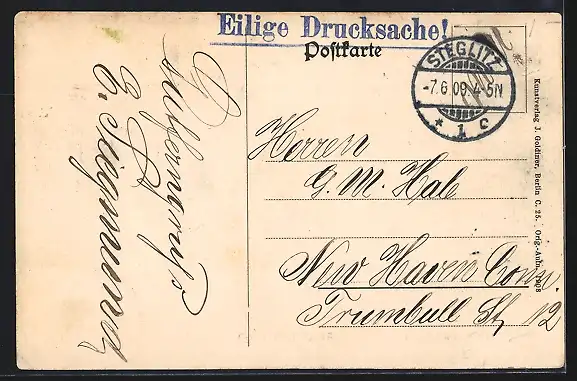 Eilige Drucksache!
Postkarte
STEGLITZ
-7.6.09.4-5N
* 1 c
Herren
G. M. Hab
New Haven Conn.
Trumbull St, 12
Kunstverlag J. Goldiner, Berlin C. 25. Orig.-Aufn. 1908